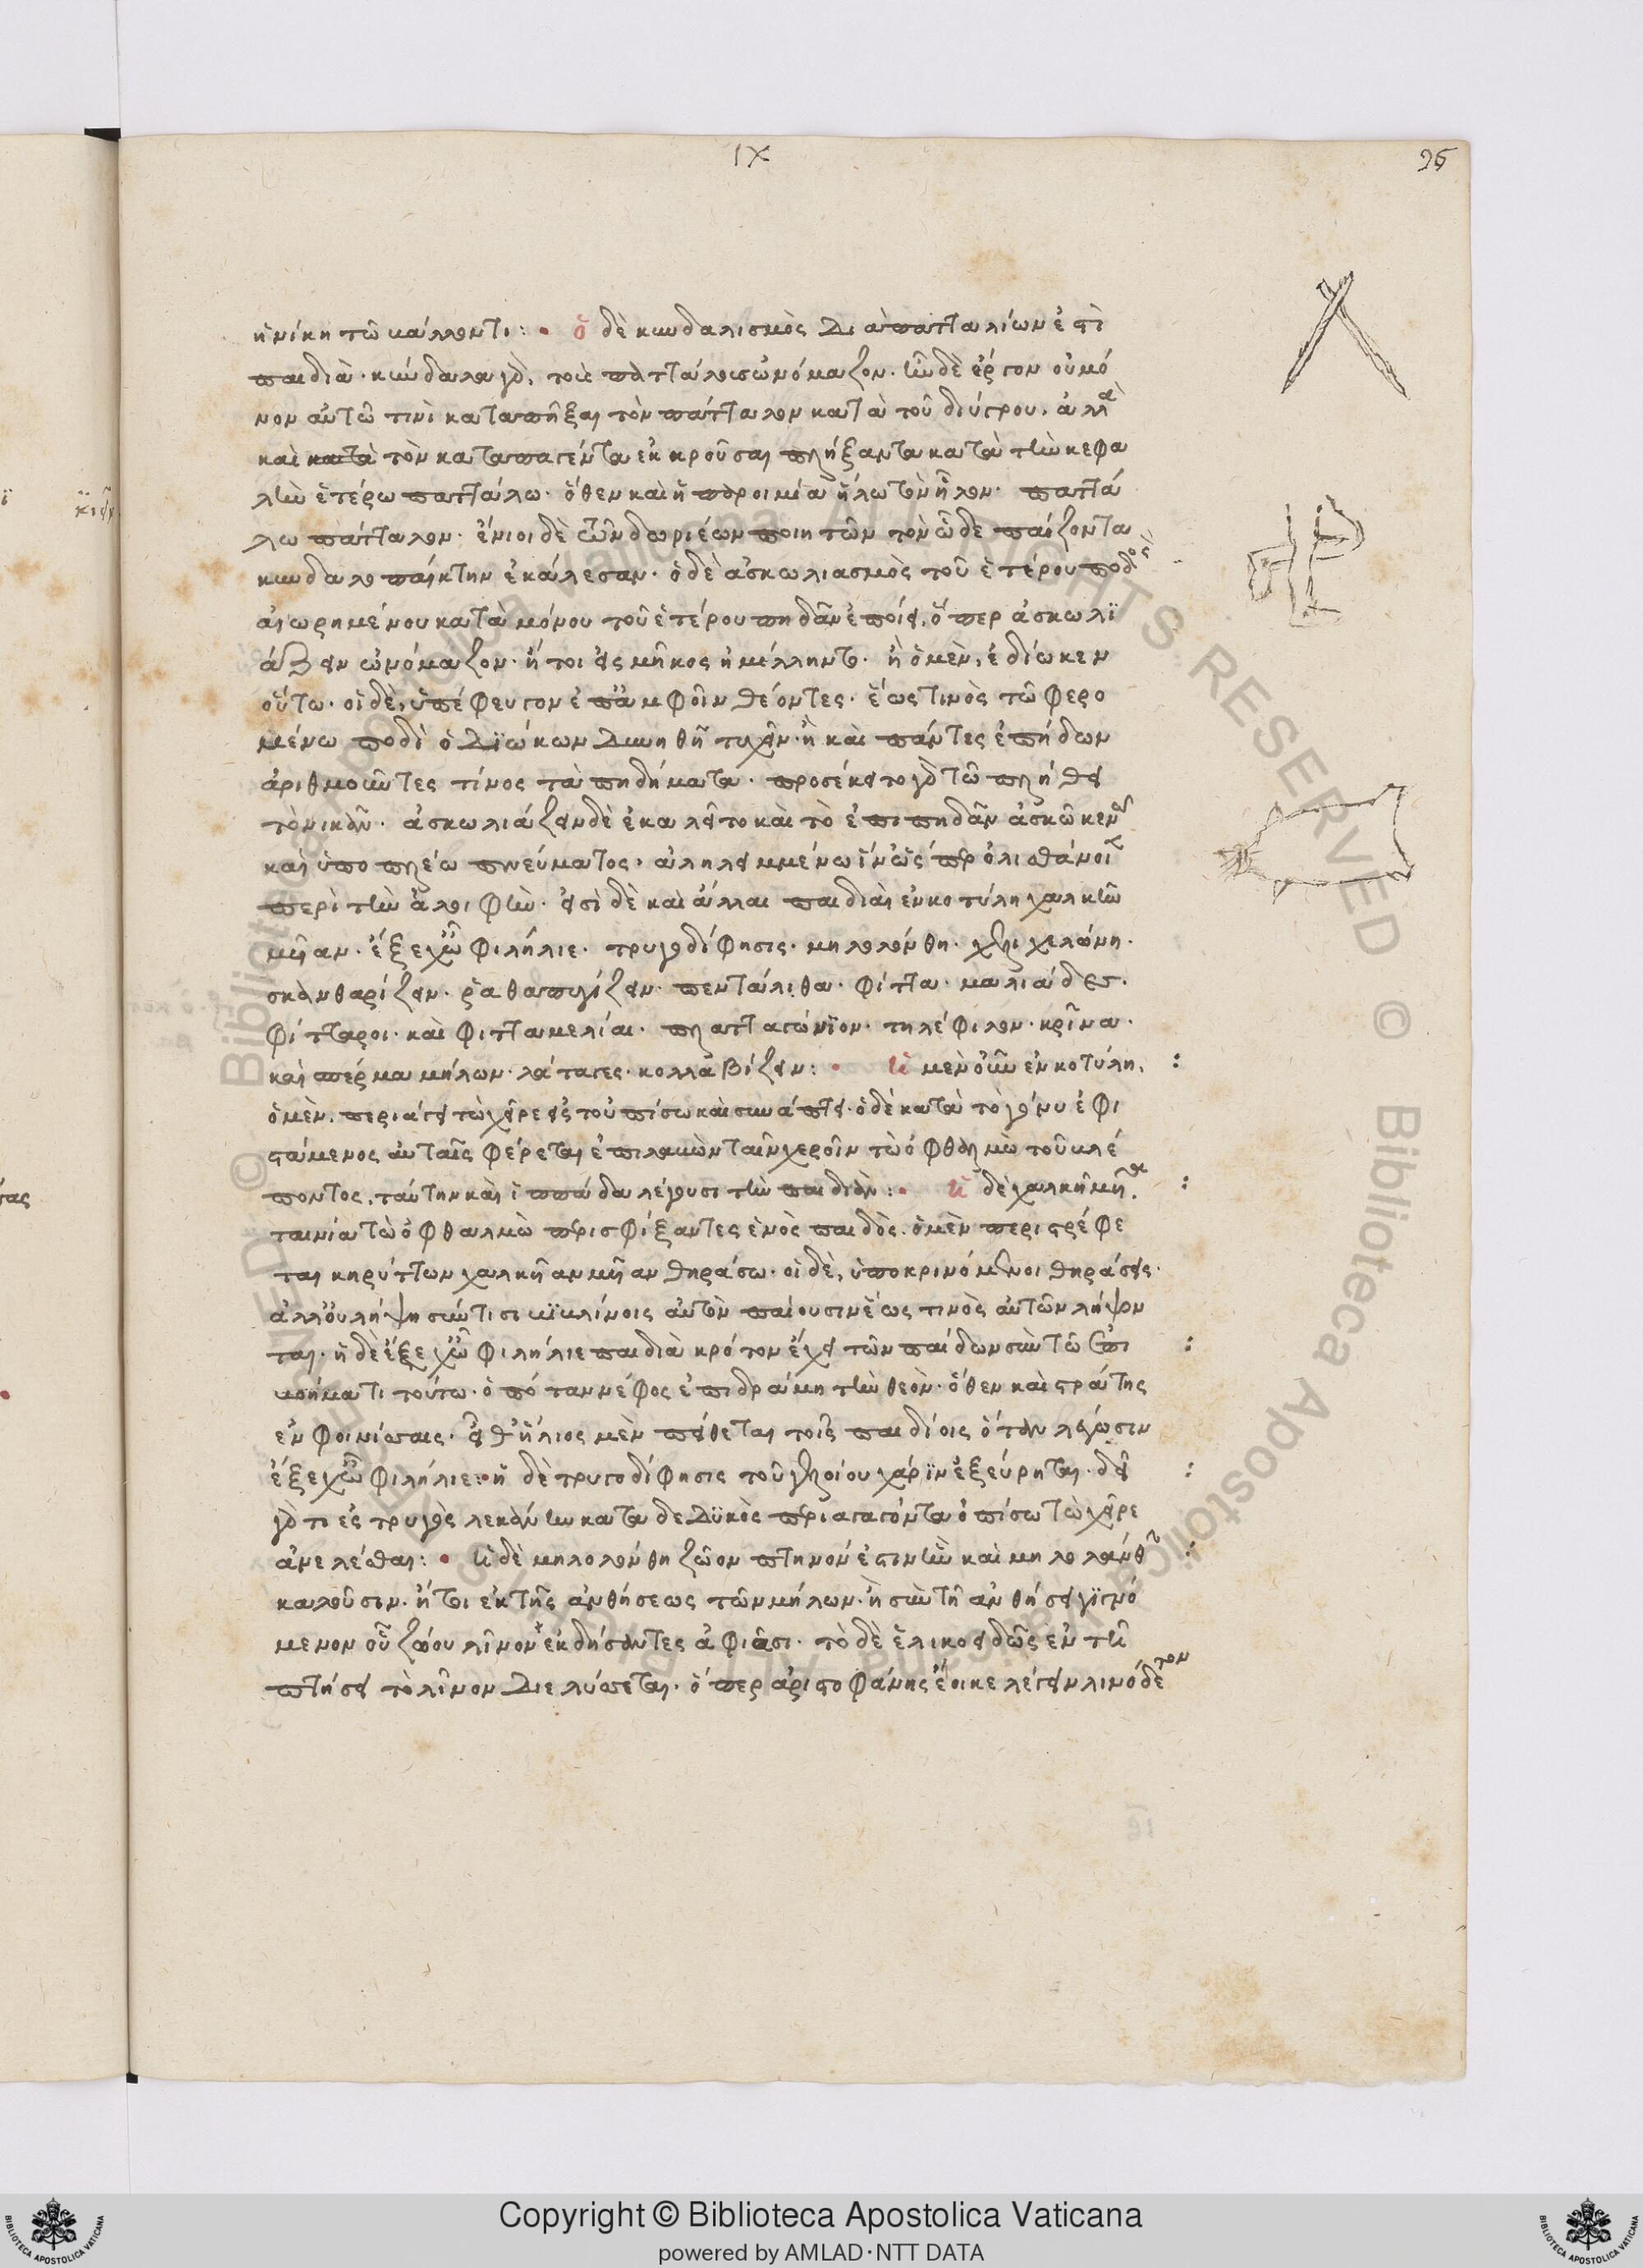 IX
95
ἡ νίκη τῶ κάλλοντι: • ὁ δὲ κυνδαλισμὸς διὰ πατταλίων ἐστὶ
παιδιά· κύνδαλα γὰρ, τοὺς παττάλους ὠνόμαζον. ἦν δὲ ἔργον οὐ μό
νον αὐτῶ τινὶ καταπῆξαι τὸν πάτταλον κατὰ τοῦ διύγρου, ἀλλὰ
καὶ κατὰ τὸν καταπαγέντα ἐκκροῦσαι πλήξαντα κατὰ τὴν κεφα
λὴν ἑτέρω παττάλω· ὅθεν καὶ ἡ παροιμία ἥλω τὸν ἧλον· παττά
λω πάτταλον· ἔνιοι δὲ τῶν δωριέων ποιητῶν τὸν ὧδε παίζοντα
κυνδαλοπαίκτην ἐκάλεσαν· ὁ δὲ ἀσκωλιασμὸς τοῦ ἑτέρου ποδὸς
αἰωρημένου κατὰ μόνου τοῦ ἑτέρου πηδᾶν ἐποίει, ὅπερ ἀσκωλϊ
άζειν ὠνόμαζον· ἤτοι εἰς μῆκος ἡμίλλητο· ἢ ὁ μὲν, ἐδίωκεν
οὕτω· οἱ δὲ, ὑπέφευγον ἐπ' ἀμφοῖν θέοντες· ἕως τινὸς τῶ φερο
μένω ποδὶ ὁ διώκων δυνηθῆ τυχεῖν· ἢ καὶ πάντες ἐπήδων
ἀριθμοῦντες τίνος τὰ πηδήματα· προσέκειτο γὰρ τῶ πλήθει
τὸ νικᾶν· ἀσκωλιάζειν δὲ ἐκαλεῖτο καὶ τὸ ἐπιπηδᾶν ἀσκῶ κενῶ
καὶ ὑπόπλεω πνεύματος· ἀληλειμμένω ἵν' ὥσπερ ὀλισθάνοι
περὶ τὴν ἀλοιφήν· εἰσὶ δὲ καὶ ἄλλαι παιδιαὶ ἐν κοτύλη χαλκὴ
μυῖαν· ἔξεχ' ὦ φίλ' ἥλιε· τρυγοδίφησις· μηλολόνθη· χελιχελώνη·
σκανθαρίζειν· ῥαθαπυγίζειν· πεντάλιθα· φίττα· μαλιάδες·
φίτταροι· καὶ φιττα μελίαι· πλαταγώνϊον· τηλέφιλον· κρῖνα·
καὶ σπέρμα μήλων· λάταγες· κολλαβίζειν: • ἡ μὲν οὖν ἐν κοτύλη,
ὁ μὲν, περιάγει τὼ χεῖρε εἰς τοὐπίσω καὶ συνάπτει· ὁ δὲ κατὰ τὸ γόνυ ἐφι
στάμενος αὐταῖς φέρεται ἐπιλαβὼν ταῖν χεροῖν τὼ ὀφθαλμὼ τοῦ κλέ
ποντος, ταύτην καὶ ἱππάδα λέγουσι τὴν παιδιάν: • ἡ δὲ χαλκῆ μυῖα
ταινία τὼ ὀφθαλμὼ περισφίξαντες ἑνὸς παιδὸς· ὁ μὲν περιστρέφε
ται κηρύττων χαλκῆαν μυῖαν θηράσω· οἱ δὲ, ὑποκρινόμενοι θηράσεις·
ἀλλ' οὐ λήψη σκύτισι κϊκλίνοις αὐτὸν παίουσιν ἕως τινὸς αὐτῶν λήψον
ται· ἡ δὲ ἔξεχ' ὦ φίλ' ἥλιε παιδιὰ κρότον ἔχει τῶν παίδων σὺν τῶ ἐπι
βοήματι τούτω· ὁπόταν νέφος ἐπιδράμη τὴν θεὸν· ὅθεν καὶ στράτης
ἐν φοινίσσαις· εἶθ' ἥλιος μὲν πείθεται τοῖς παιδίοις ὅταν λέγωσιν
ἔξεχ' ὦ φίλ' ἥλιε: • ἡ δὲ τρυγοδίφησις τοῦ γελοίου χάρϊν ἐξεύρηται· δεῖ
γάρ τι ἐς τρυγὸς λεκάνην καταδεδϋκὸς περιαγαγόντα ὀπίσω τὼ χεῖρε
ἀνελέσθαι: • ἡ δὲ μηλολόνθη ζῶον πτηνόν ἐστιν ἣν καὶ μηλολάνθην
καλοῦσιν· ἤτοι ἐκ τῆς ἀνθήσεως τῶν μήλων· ἢ σὺν τῆ ἀνθήσει γϊγνό
μενον οὗ ζώου λῖνον ἐκδήσαντες ἀφιᾶσι· τὸ δὲ ἑλικοειδῶς ἐν τῆ
πτήσει τὸ λῖνον διελύσεται· ὅπερ ἀριστοφάνης ἔοικε λέγειν λινόδετον